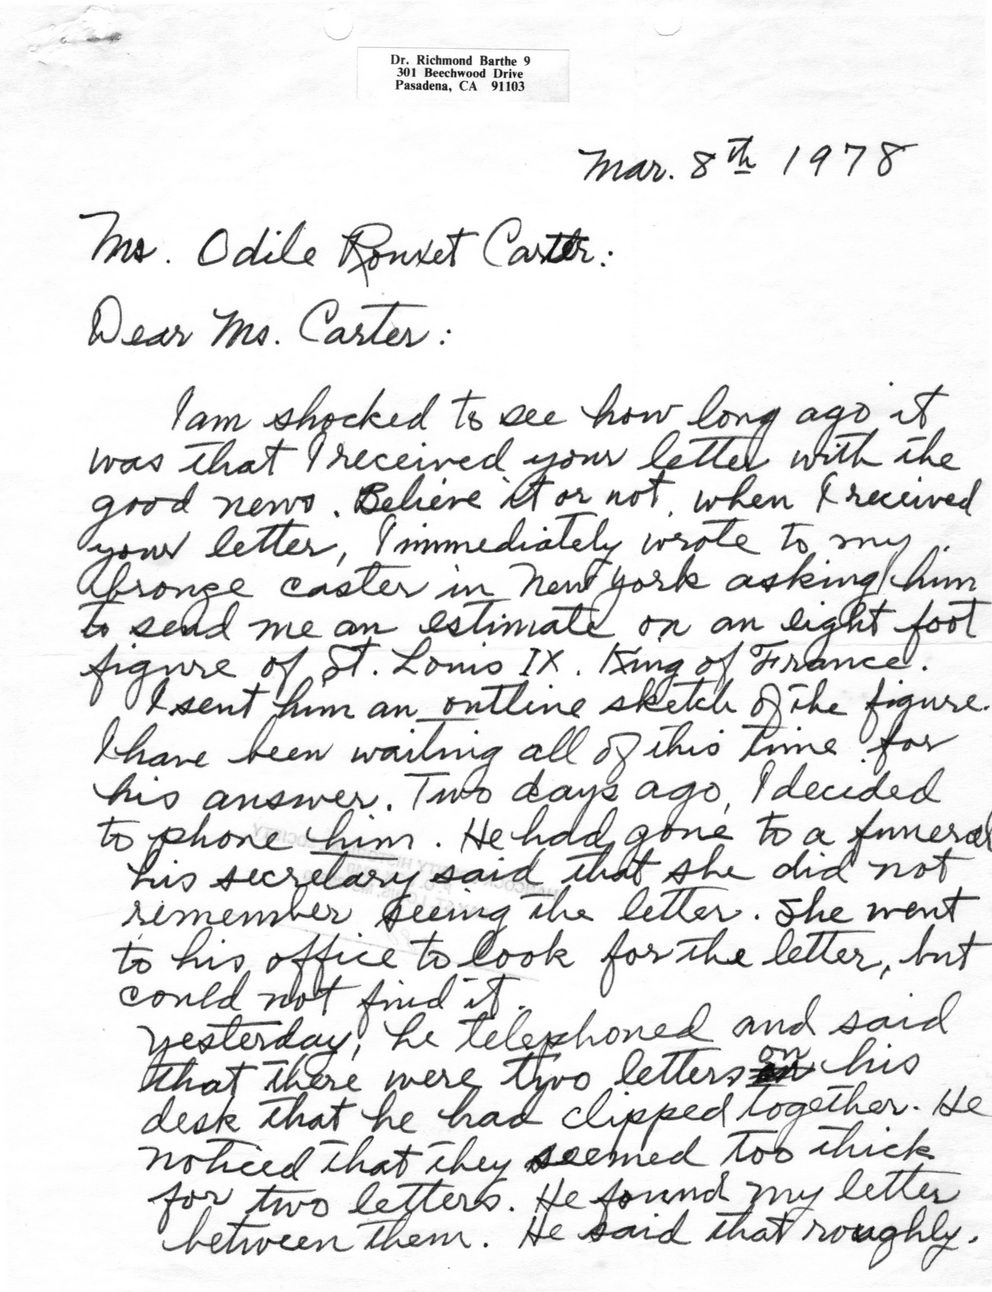 Dr. Richmond Barthe 9
301 Beechwood Drive
Pasadena, CA 91103
Mar. 8th 1978
Ms. Odile Rouxet Carter:
Dear Ms. Carter:
I am shocked to see how long ago it
was that I received your letter with the
good news. Believe it or not, when I received
your letter, I immediately wrote to my
bronze caster in New York asking him
to send me an estimate on an eight foot
figure of St. Louis IX. King of France.
I sent him an outline sketch of the figure.
I have been waiting all of this time for
his answer. Two days ago, I decided
to phone him. He had gone to a funeral
his secretary said that she did not
remember seeing the letter. She went
to his office to look for the letter, but
could not find it.
Yesterday, he telephoned and said
that there were two letters on his
desk that he had clipped together. He
noticed that they seemed too thick
for two letters. He found my letter
between them. He said that roughly.